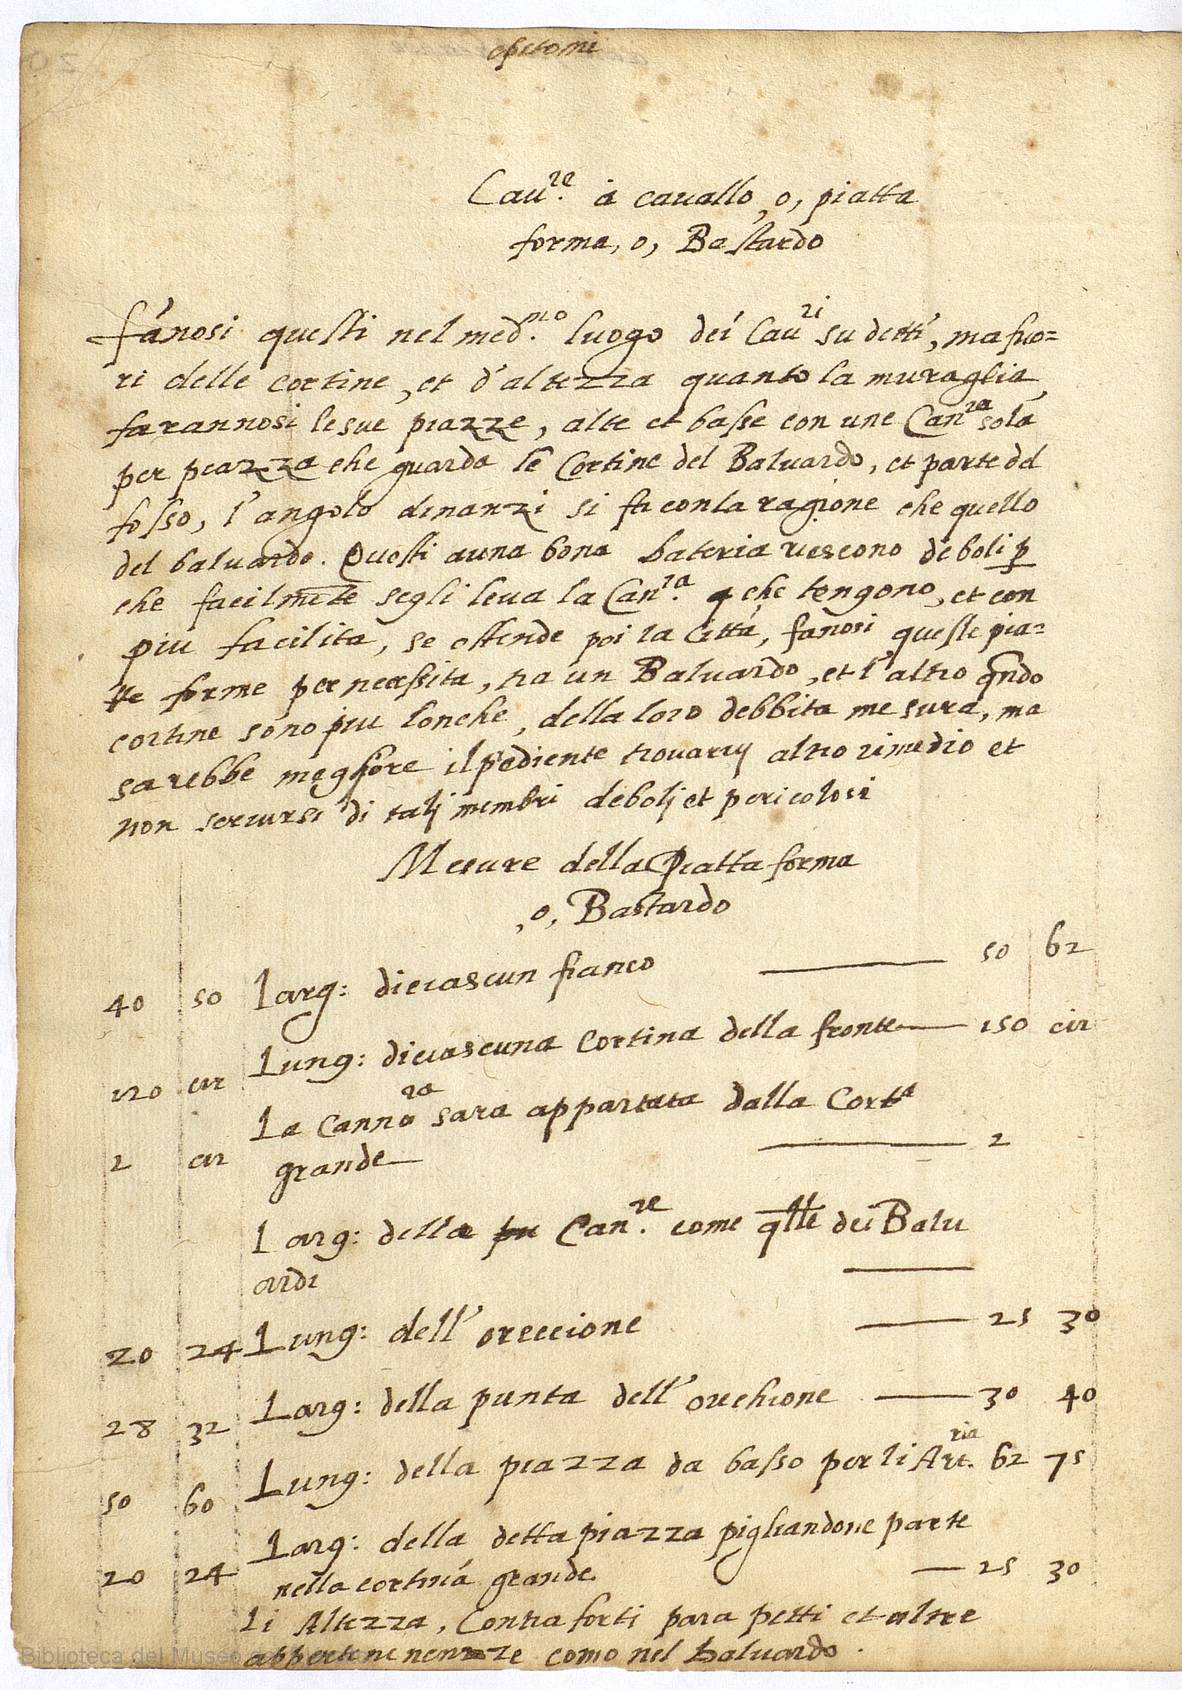 epitomi
Cau.re à cauallo, o, piatta
forma, o, Bastardo
fánosi questi nel med.mo luogo dei Cauri su detti, ma fuo=
ri delle cortine, et d'altezza quanto la muraglia
farannosi le sue piazze, alte et basse con una Can.ra sola
per piazza che guarda le Cortine del Baluardo, et parte del
fosso, l'angolo dinanzi si fa con la ragione che quello
del baluardo. Questi a una bona bateria riescono deboli p
che facilmẽte segli leua la Can.ra che tengono, et con
piu facilita, se ofende poi la Città, fanosi queste pia=
te forme per necessita, tra un Baluardo, et l'altro qñdo
cortine sono piu lonche, della loro debbita mesura, ma
sarebbe megliore ispediente trouarui altro rimedio et
non seruirsi di talj membri debolj et pericolosi
Mesure della Piatta forma
, o, Bastardo
40 50 Larg: di ciascun fianco 50 62
120 cir Lung: di ciascuna Cortina della fronte 150 cir
La Cannora sara appartata dalla Corta
2 cir grande 2
Larg: della Can.re come q̃lle dei Balu
ardi
20 24 Lung: dell'oreccione 25 30
28 32 Larg: della punta dell'orechione 30 40
50 60 Lung: della piazza da basso per li Art.ria 62 75
Larg: della detta piazza pigliandone parte
20 24 nella cortina grande 25 30
Li Altezza, Contraforti parapetti et altre
appertenenenzze como nel Baluardo.
Biblioteca del Museo